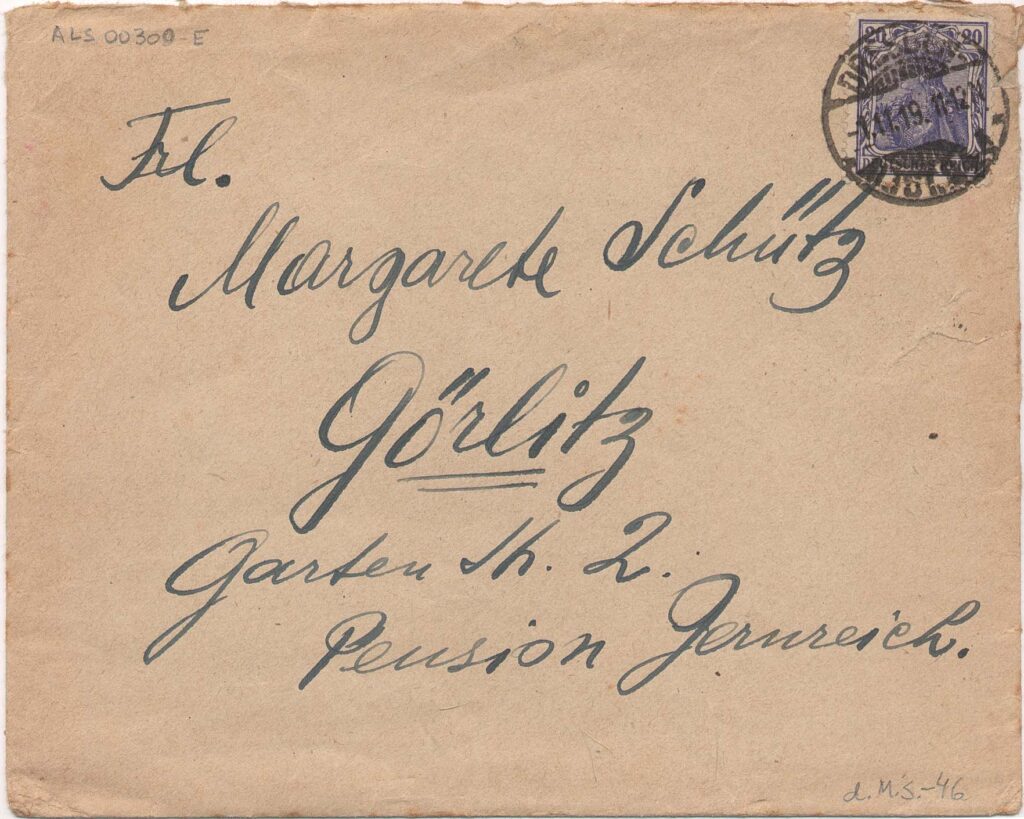 ALS 00300-E
20 20
DRESDEN
-1.11.19. 11-12V.
Frl.
Margarete Schütz
Görlitz
Garten Str. 2.
Pension Gernreich.
d.M.S.-46